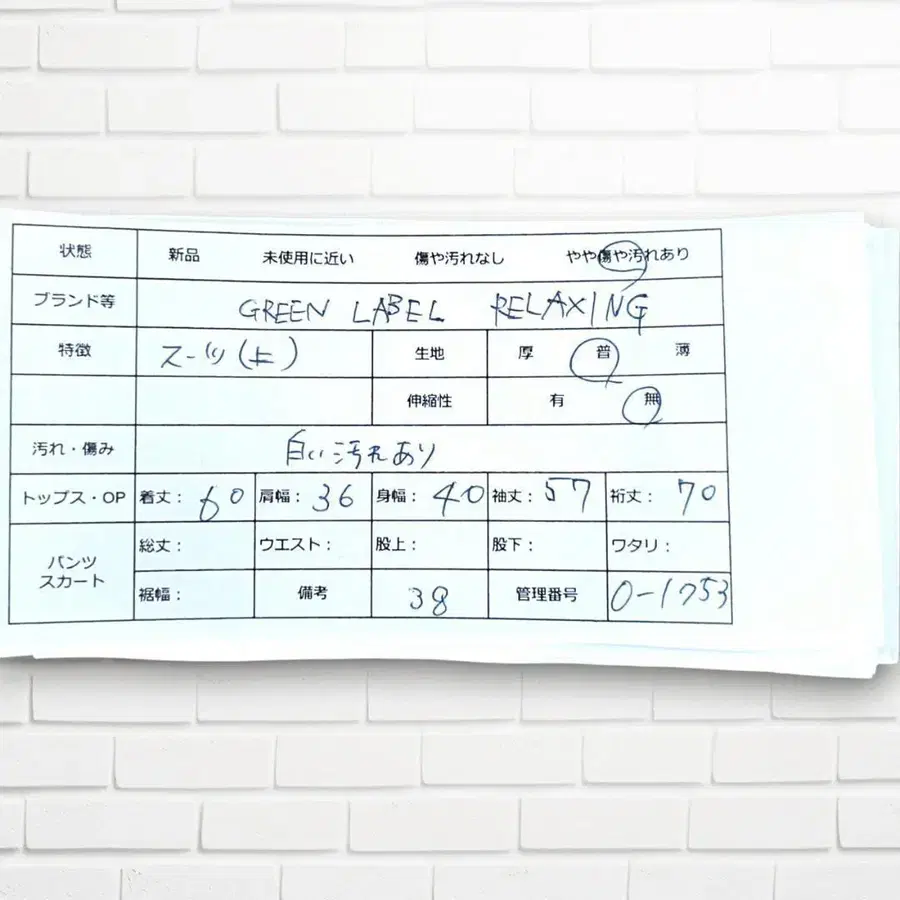 状態 新品 未使用に近い 傷や汚れなし やや傷や汚れあり
ブランド等 GREEN LABEL RELAXING
特徴 スーツ(上) 生地 厚 普 薄
伸縮性 有 無
汚れ・傷み 白い汚れあり
トップス・OP 着丈: 60 肩幅: 36 身幅: 40 袖丈: 57 裄丈: 70
パンツ スカート 総丈: ウエスト: 股上: 股下: ワタリ:
裾幅: 備考 38 管理番号 0-1753